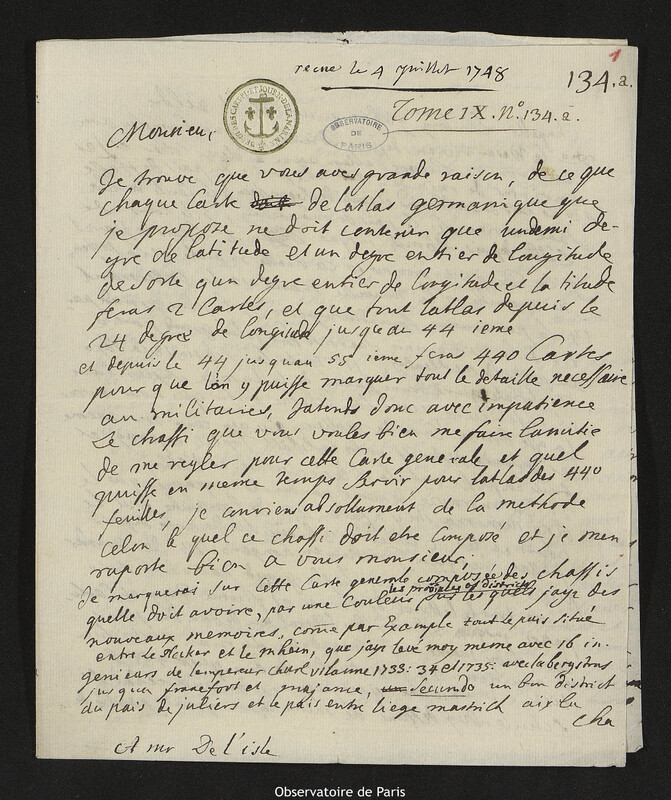 1
recue le 4 Juillet 1748
134.a.
Tome IX. N.º 134. a.
OBSERVATOIRE
DE
PARIS
Monsieur,
Je trouve que vous aves grande raison, de ce que
chaque Carte de latlas germanique que
je propose ne doit contenir que undemi de-
gre de latitude et un degre entier de longitude
de sorte qun degre entier de longitude et la titude
feras 2 Cartes, et que tout latlas depuis le
24 degre de longitude jusquau 44 ieme
et depuis le 44 jusquau 55 ieme feras 440 Cartes
pour que lon y puisse marquer tout le detaille necessaire
au militaires, Jatends donc avec impatience
Le chassi que vous voules bien me faire lamitie
de me regler pour cette Carte generale et quel
puisse en meme temps servir pour latlas des 440
feuilles, je conviens absollument de la methode
celon le quel ce chassi doit etre Composé et je men
raporte bien a vous monsieur.
Je marquerai sur cette Carte generale composée des chassis
les provinces et districts
quelle doit avoire, par une Couleur sur les quels jaye des
nouveaux memoires, come par Example tout le païs situé
entre Le Neckar et le rhein, que jaye levé moy meme avec 16 in-
genieurs de lempereur Charl vi lanne 1733: 34 et 1735: avec la bergstras
jusqua francfort et mayance, secundo un bon district
du païs de juliers et le païs entre liege mastrich aix la
cha
A mr De l'isle
Observatoire de Paris